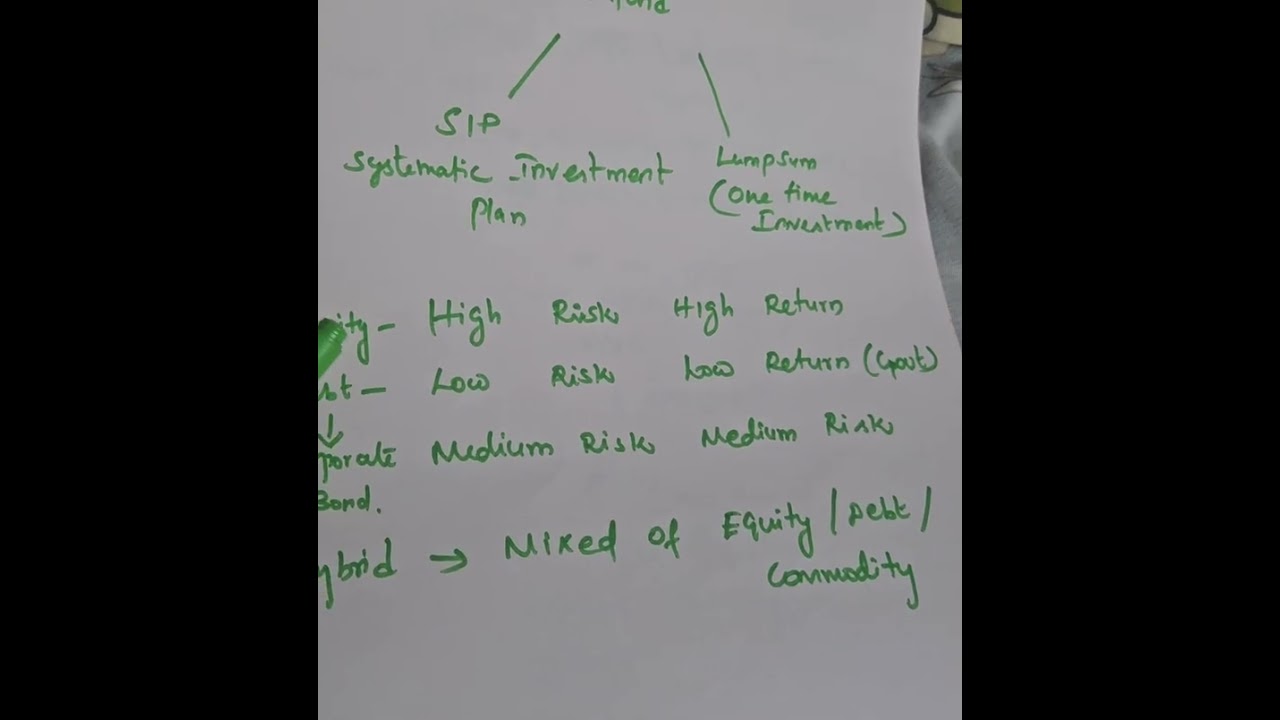 SIP
Systematic Investment
Plan
Lumpsum
(One time
Investment)
ity - High Risk High Return
bt - Low Risk Low Return (Govt)
↓
porate Medium Risk Medium Risk
Bond.
ybrid → Mixed of Equity / Debt /
Commodity